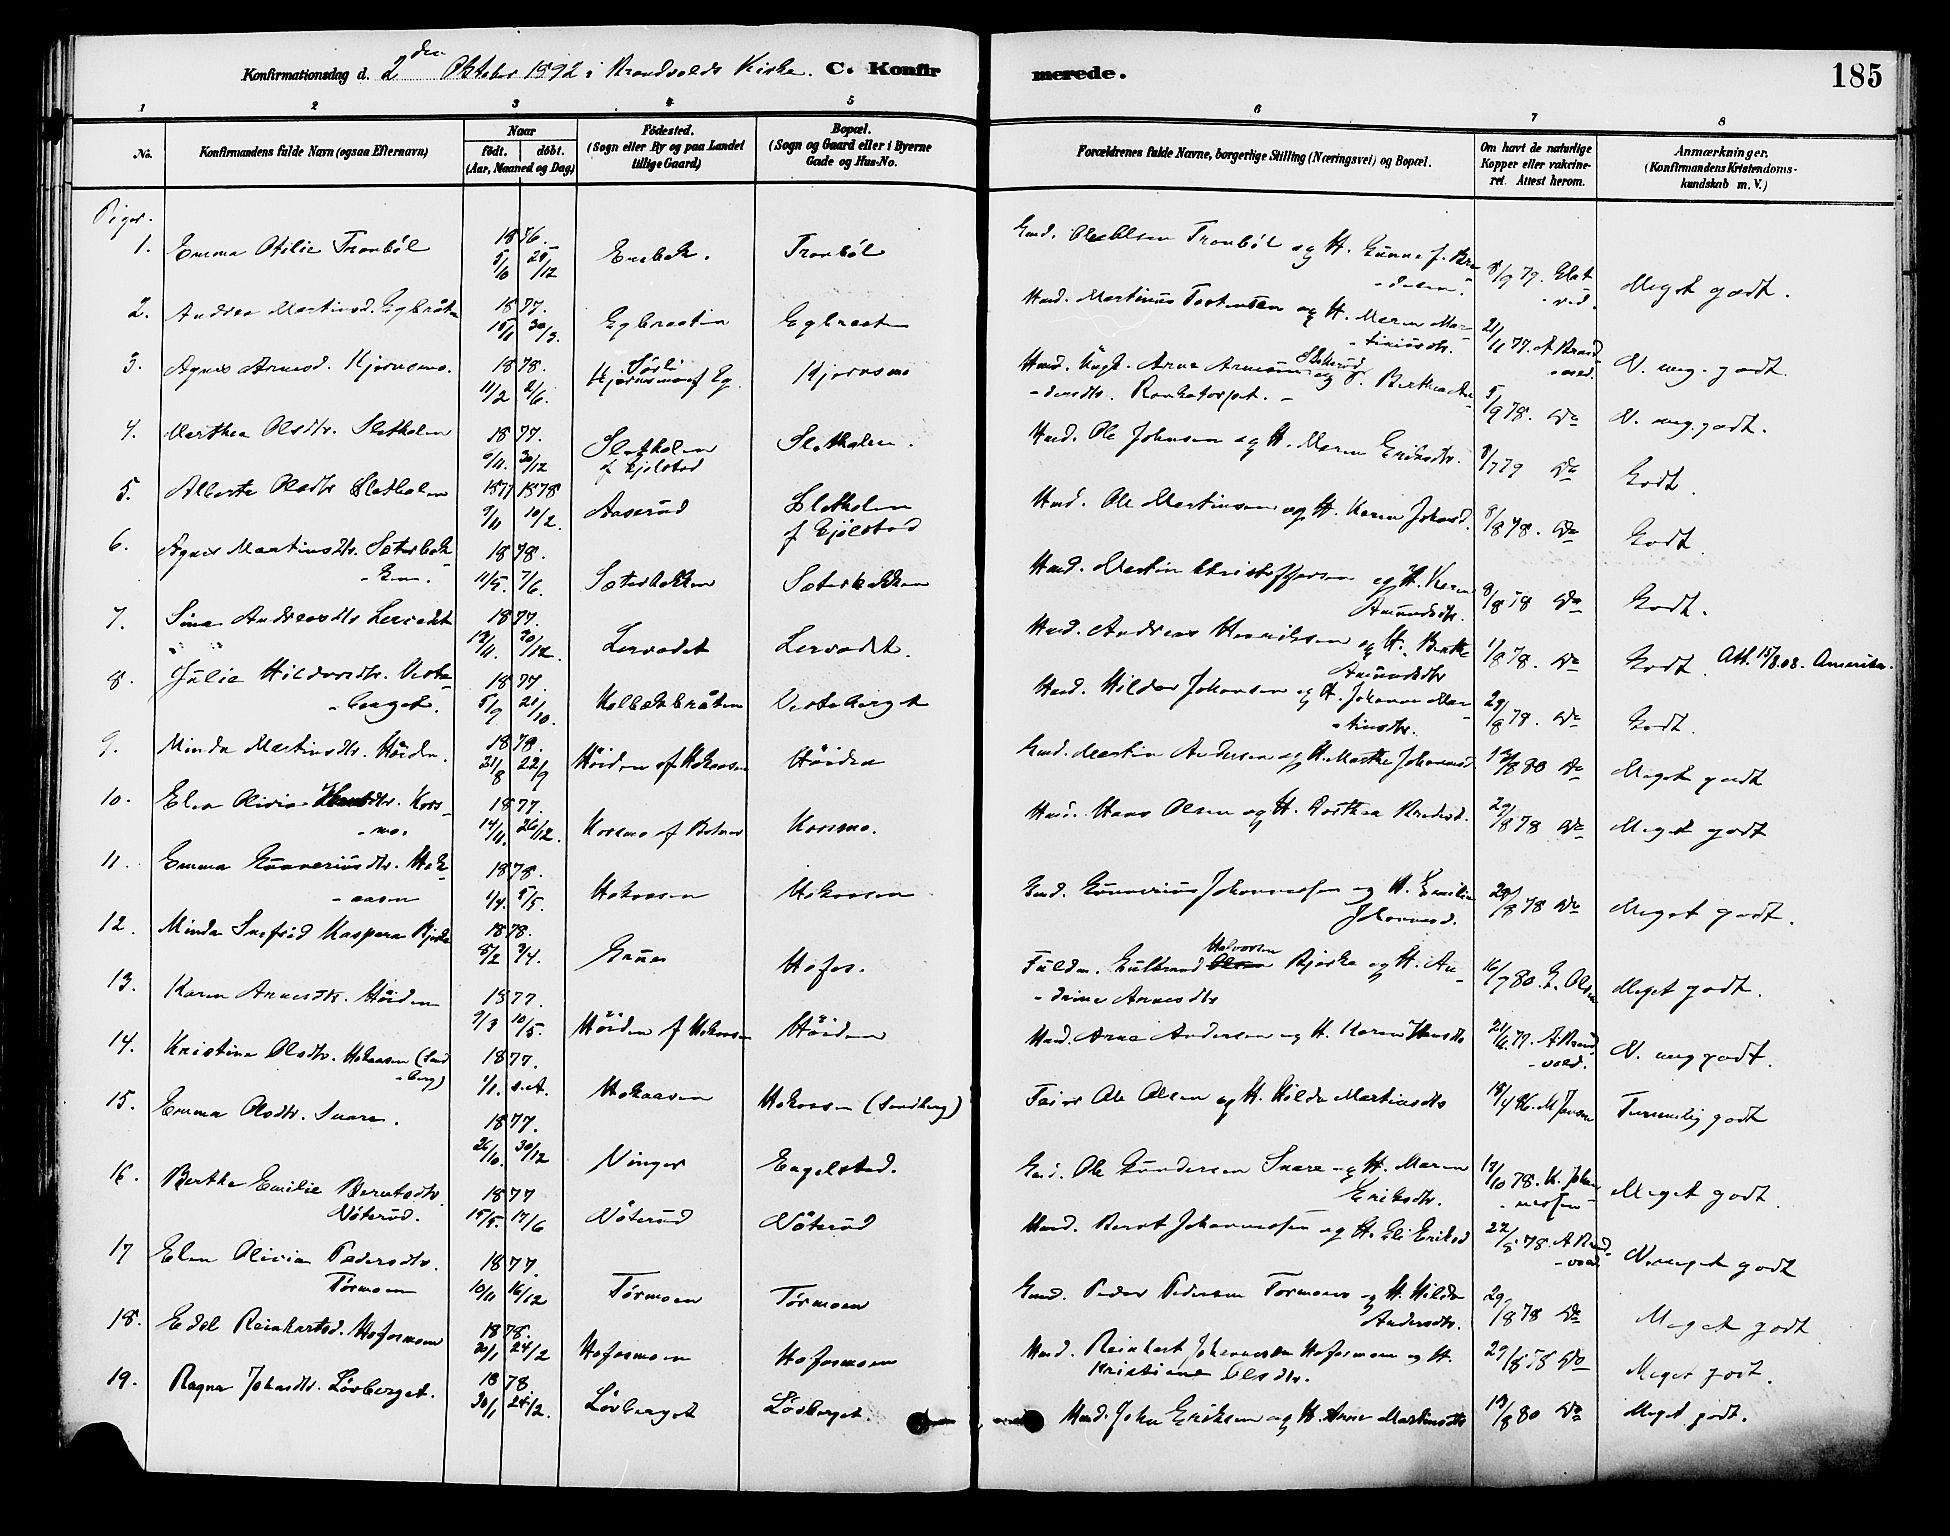 Konfirmationsdag d. 2den Oktober 1892 i Brandvolds Kirke. C. Konfirmerede. 185
1 2 3 4 5 6 7 8
No. Konfirmandens fulde Navn (ogsaa Efternavn) Naar født. døbt. (Aar, Maaned og Dag) Fødested. (Sogn eller By og paa Landet tillige Gaard) Bopæl. (Sogn og Gaard eller i Byerne Gade og Hus-No. Forældrenes fulde Navne, borgerlige Stilling (Næringsvei) og Bopæl. Om havt de naturlige Kopper eller vakcineret. Attest herom. Anmærkninger. (Konfirmandens Kristendomskundskab m. V.)
Piger.
1. Emma Otilie Tronbøl 1876. Enebak. Tronbøl Gmd. Ole Olsen Tronbøl og H. Meget godt.
2. Andrea Martinsd. Egbråten 1877. 30/3. Egbraaten Egbraaten Hmd. Martinus Torstensen og H. Maren Martiniusdtr. 21/11 77. A Brandvold. N. meg. godt.
3. Agnes Arnesd. Kjernsmo. 1878. 11/2 2/6. Kjernsmo Hmd. Arne 5/9 78. Do N. meg. godt.
4. Marthea Olsdtr. Sletholen 1877. 9/11. 30/12 Sletholen Sletholen. Hmd. Ole Johnsen og H. Maren Eriksdtr. 8/7 79 Do Godt.
5. Alberte Olsdtr Sletholen 1877 1878 9/11 10/2. Aaserud Sletholen Hmd. Ole Martinsen og H. Karen Johnsd. 8/8 78. Do Godt.
6. Agnes Martinsdtr. Sæterbakken. 1878. 11/5. 7/6. Sæterbakken Sæterbakken Hmd. Martin Christoffersen og H. Karen Amundsdtr. 8/8 78 Do Godt.
7. Sina Andreasdtr Lervadet 1877. 30/12. Lervadet Lervadet. Hmd. Andreas Henriksen og H. Berthe Amundsdtr 1/8 78. Do Godt. Att. 15/8.08. Amerika.
8. Julie Hildorsdtr. Vesteberget. 1877 5/9 21/10. Kalbækbråten Vesteberget Hmd. Hildor Johansen og H. Johanne Martinsdtr. 29/8 78. Do Godt.
9. Minda Martinsdtr. Høiden. 1878. 21/8 22/9 Høiden af Hokaasen Høiden Gmd. Martin Andersen og H. Marthe Johannesd. 12/8 80 Do Meget godt
10. Elen Olivia Hansdtr. Korsmo. 1877. 14/11. 26/12. Korsmo Korsmo. Hmd. Hans Olsen og H. Dorthea 29/8 78 Do Meget godt
11. Emma Gunneriusdtr. Hokaasen 1878. 1/4. 5/5. Hokaasen Hokaasen Gmd. Gunnerius Johannessen og H. Emilie Johannesd. 29/8 78 Do Meget godt.
12. Minda Kaspera Bjerke 1878. 8/2 Grue Hofos. Fuldm. Gulbrand Halvorsen Bjerke og H. Andrine Arnesdtr 16/7 80. Olsen Meget godt.
13. Karen Arnesdtr. Høiden 1877. 9/3 10/5. Høiden af Hokaasen Høiden Hmd. Arne Andersen og H. Karen Hansdtr 79. A Brandvold. N. meg godt.
14. Kristine Olsdtr. Hokaasen (Sandberg) 1877. 1/1. s.A. Hokaasen Hokaasen (Sandberg) Ole Olsen og H. Hilda Martinsdtr Temmelig godt
15. Emma Olsdtr. Snare. 1877. 26/10. 30/12 Vinger Engelstad. Gmd. Ole Gundersen Snare og H. Maren Eriksdtr. 17/10 78. K. Johannessen Meget godt.
16. Berthe Emilie Berntsdtr. Nøterud. 1877 15/5. 17/6 Nøterud Nøterud Hmd. Bernt Johannessen og H. Eli Eriksd 78. A Brandvold. N. meget godt
17 Elen Olivia Pedersdtr. Tørmoen 1877. 10/11 16/12 Tørmoen Tørmoen Gmd. Peder Pedersen Tørmoen og H. Hilda Andersdtr. 29/8 78 Do Meget godt
18. Edel Reinhartsd. Hofosmoen 1878. 20/1 24/2 Hofosmoen Hofosmoen Hmd. Reinhart Johannessen Hofosmoen og H. Kristiane Olsdtr. 29/8 78 Do Meget godt.
19. Ragna Johnsdtr. Løvberget. 1878. 30/1 24/2. Løvberget Løvberget. Hmd. John Eriksen og H. Anne Martinsdtr 13/8 80 Do Meget godt.